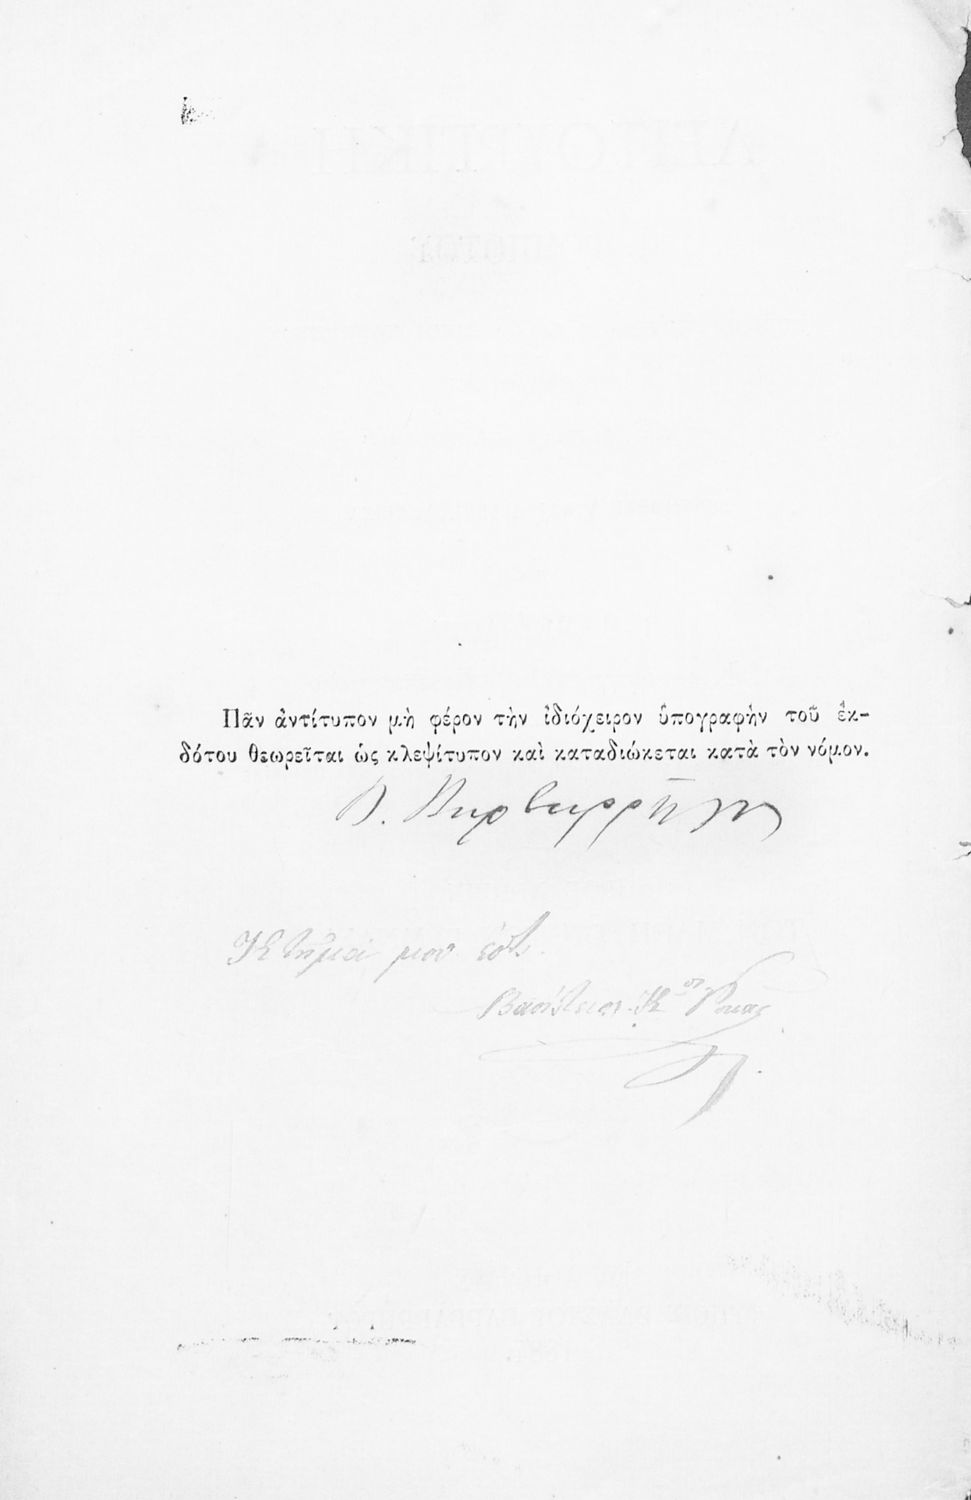 Πᾶν ἀντίτυπον μὴ φέρον τὴν ἰδιόχειρον ὑπογραφὴν τοῦ ἐκ-
δότου θεωρεῖται ὡς κλεψίτυπον καὶ καταδιώκεται κατὰ τὸν νόμον.
Κτῆμά μου ἐστ
Βασίλειος Κ